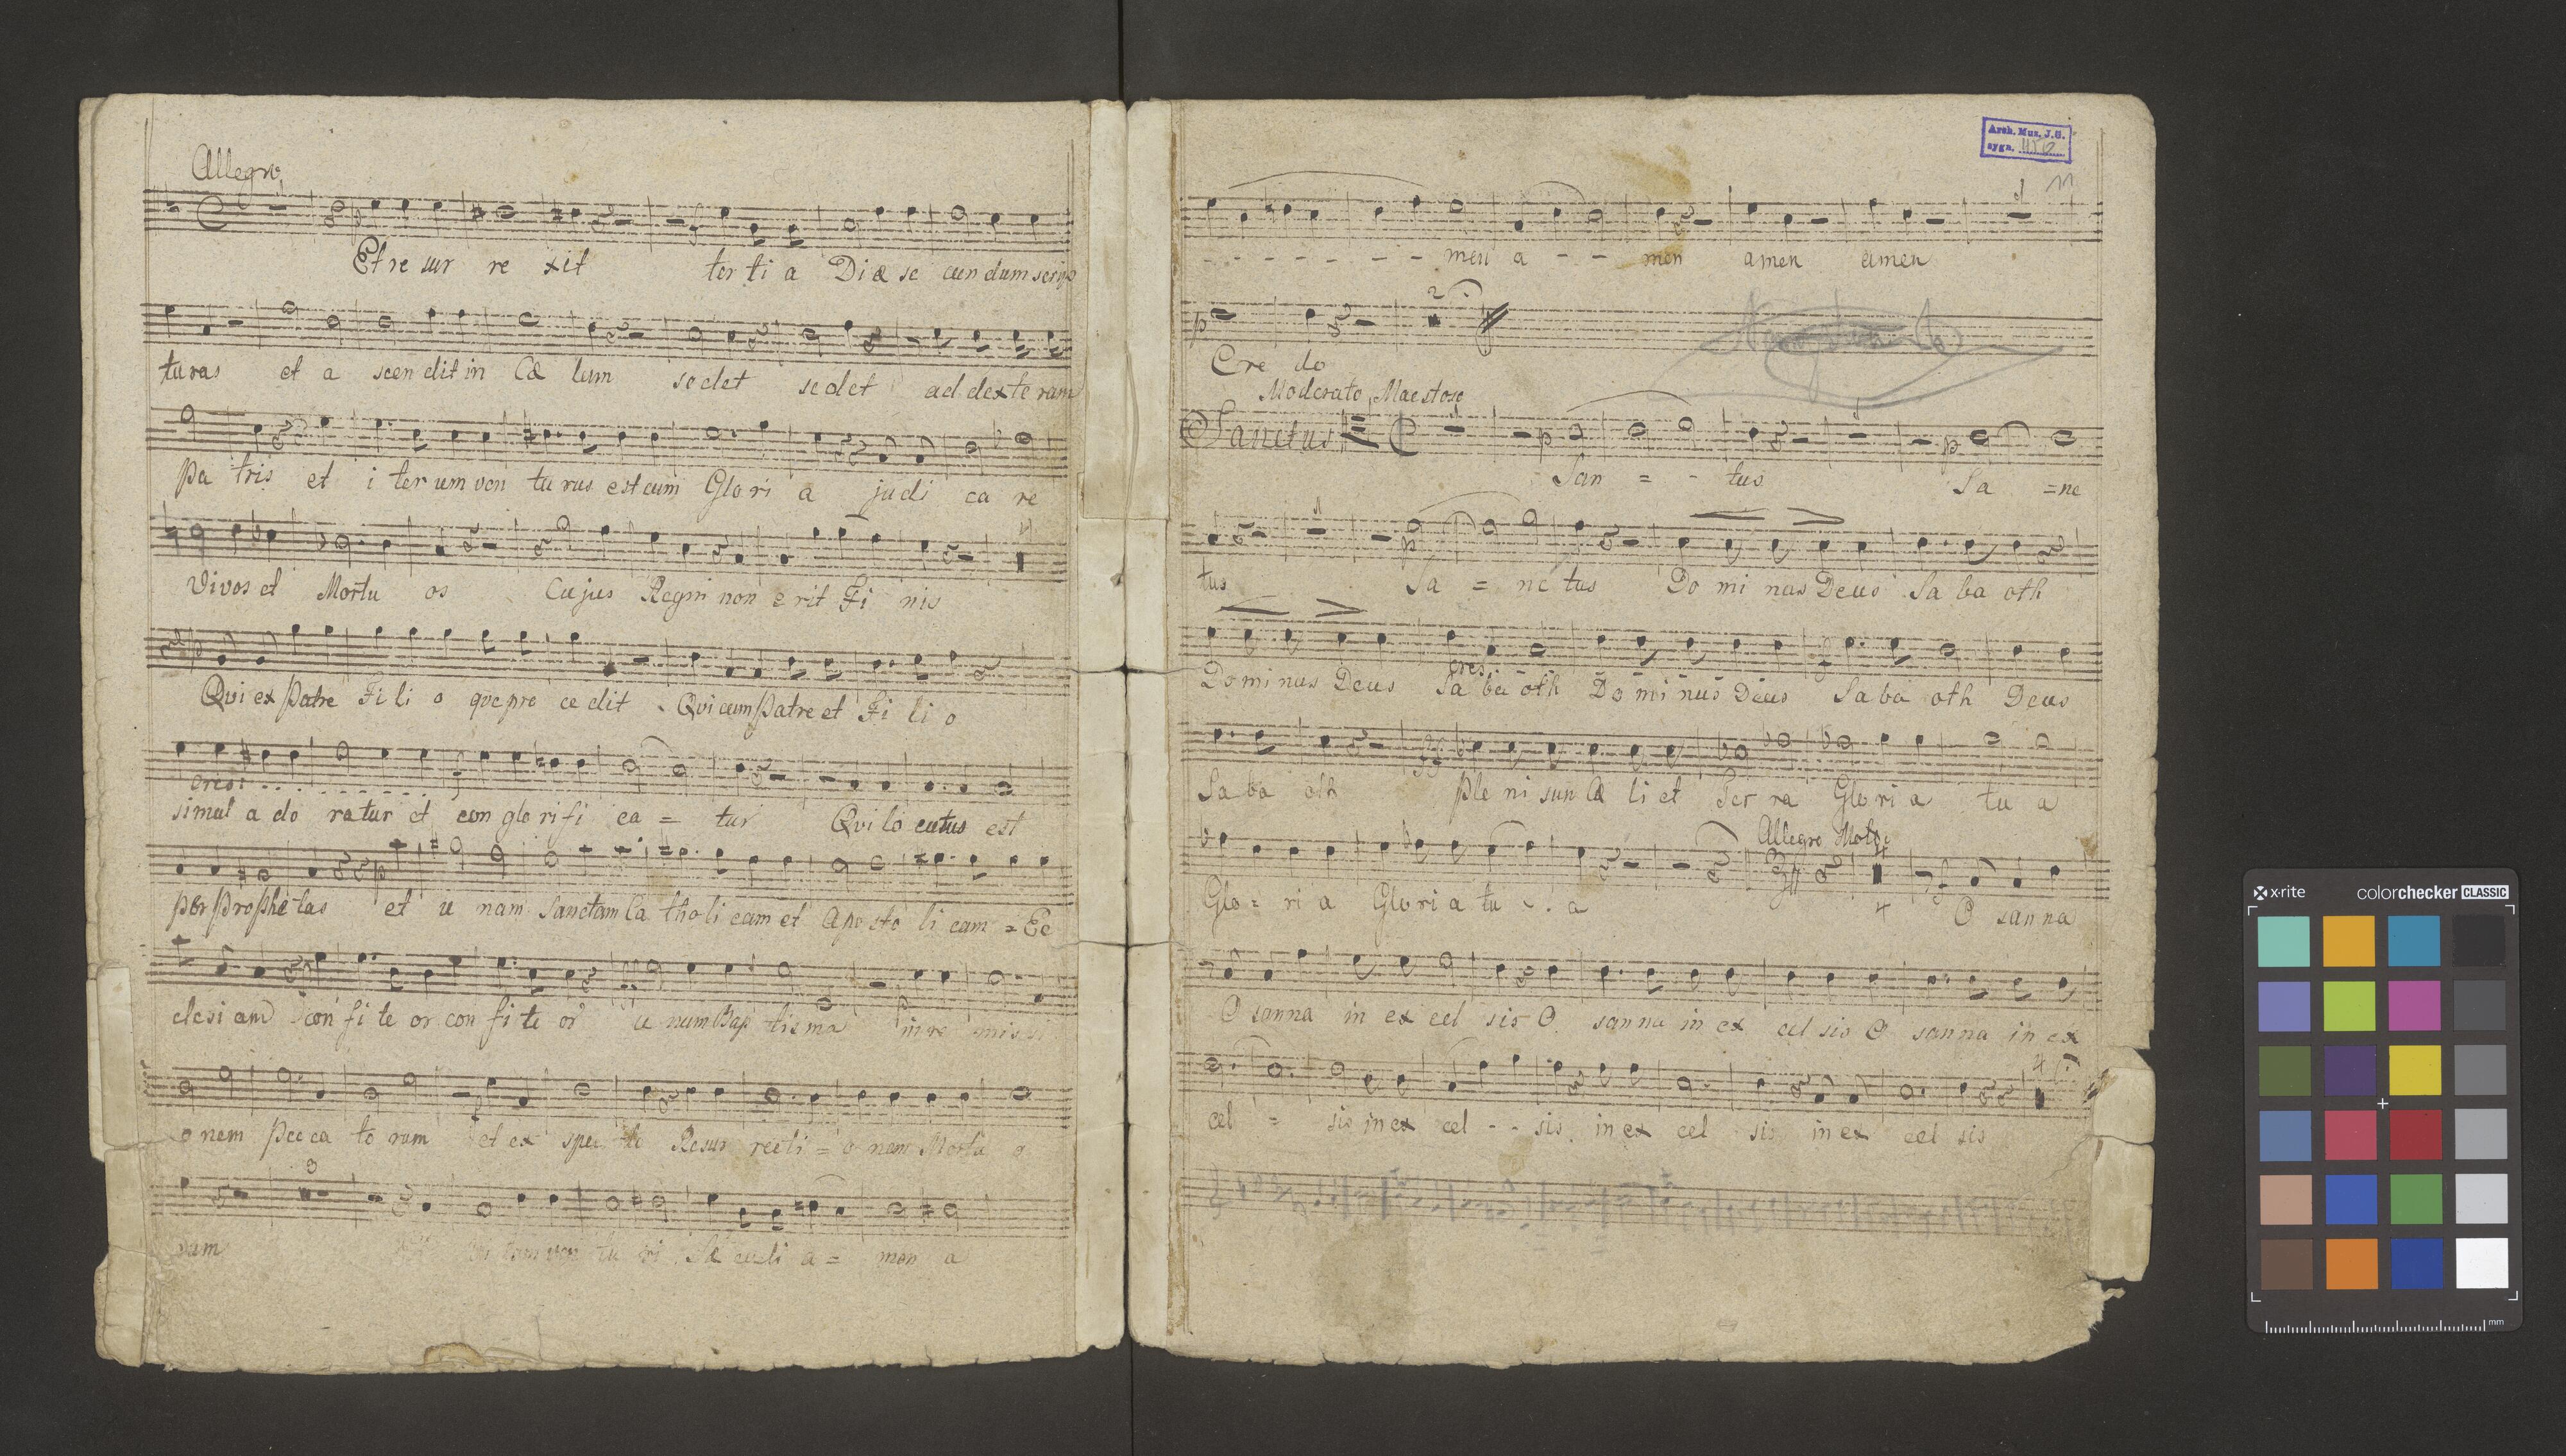 Allegro
Et re sur re xit ter ti a Diæ se cun dum scrip
tu ras et a scen dit in Cæ lum sedet sedet ad dex te ram
Pa tris et i ter um ven tu rus est cum Glo ri a judi ca re
Vivos et Mortu os Cujus Regni non e rit Fi nis
Qui ex Patre Fi li o que pro ce dit Qui cum Patre et Fi li o
cres:
simul a do ratur et con glo rifi ca = tur Qui lo cutus est
per Prophe tas et u nam Sanctam Ca tholi cam et Apo sto li cam = Ec
clesi am con fi te or con fi te or u num Bap tis ma in re missi
o nem pec ca to rum et ex spec to Resur recti = o nem Mortu o
3
rum vi tam ven tu ri Sæ culi a = men a
Arch. Muz. J.G.
sygn.
11
men a - - men amen amen
2
Cre do
Moderato Maestoso
Sanctus
San = - tus Sa = nc
tus Sa = nc tus Do mi nus Deus Sa ba oth
cres
Do mi nus Deus Sa ba oth Do mi nus Deus Sa ba oth Deus
Sa ba oth Ple ni sun Cæ li et Ter ra Glo ri a tu a
Allegro Molto
4
Glo = ri a Glo ri a tu - . a 4 O san na
O sanna in ex cel sis O sanna in ex cel sis O sanna in ex
4
cel = sis in ex cel - - sis in ex cel sis in ex cel sis
x-rite colorchecker CLASSIC
mm